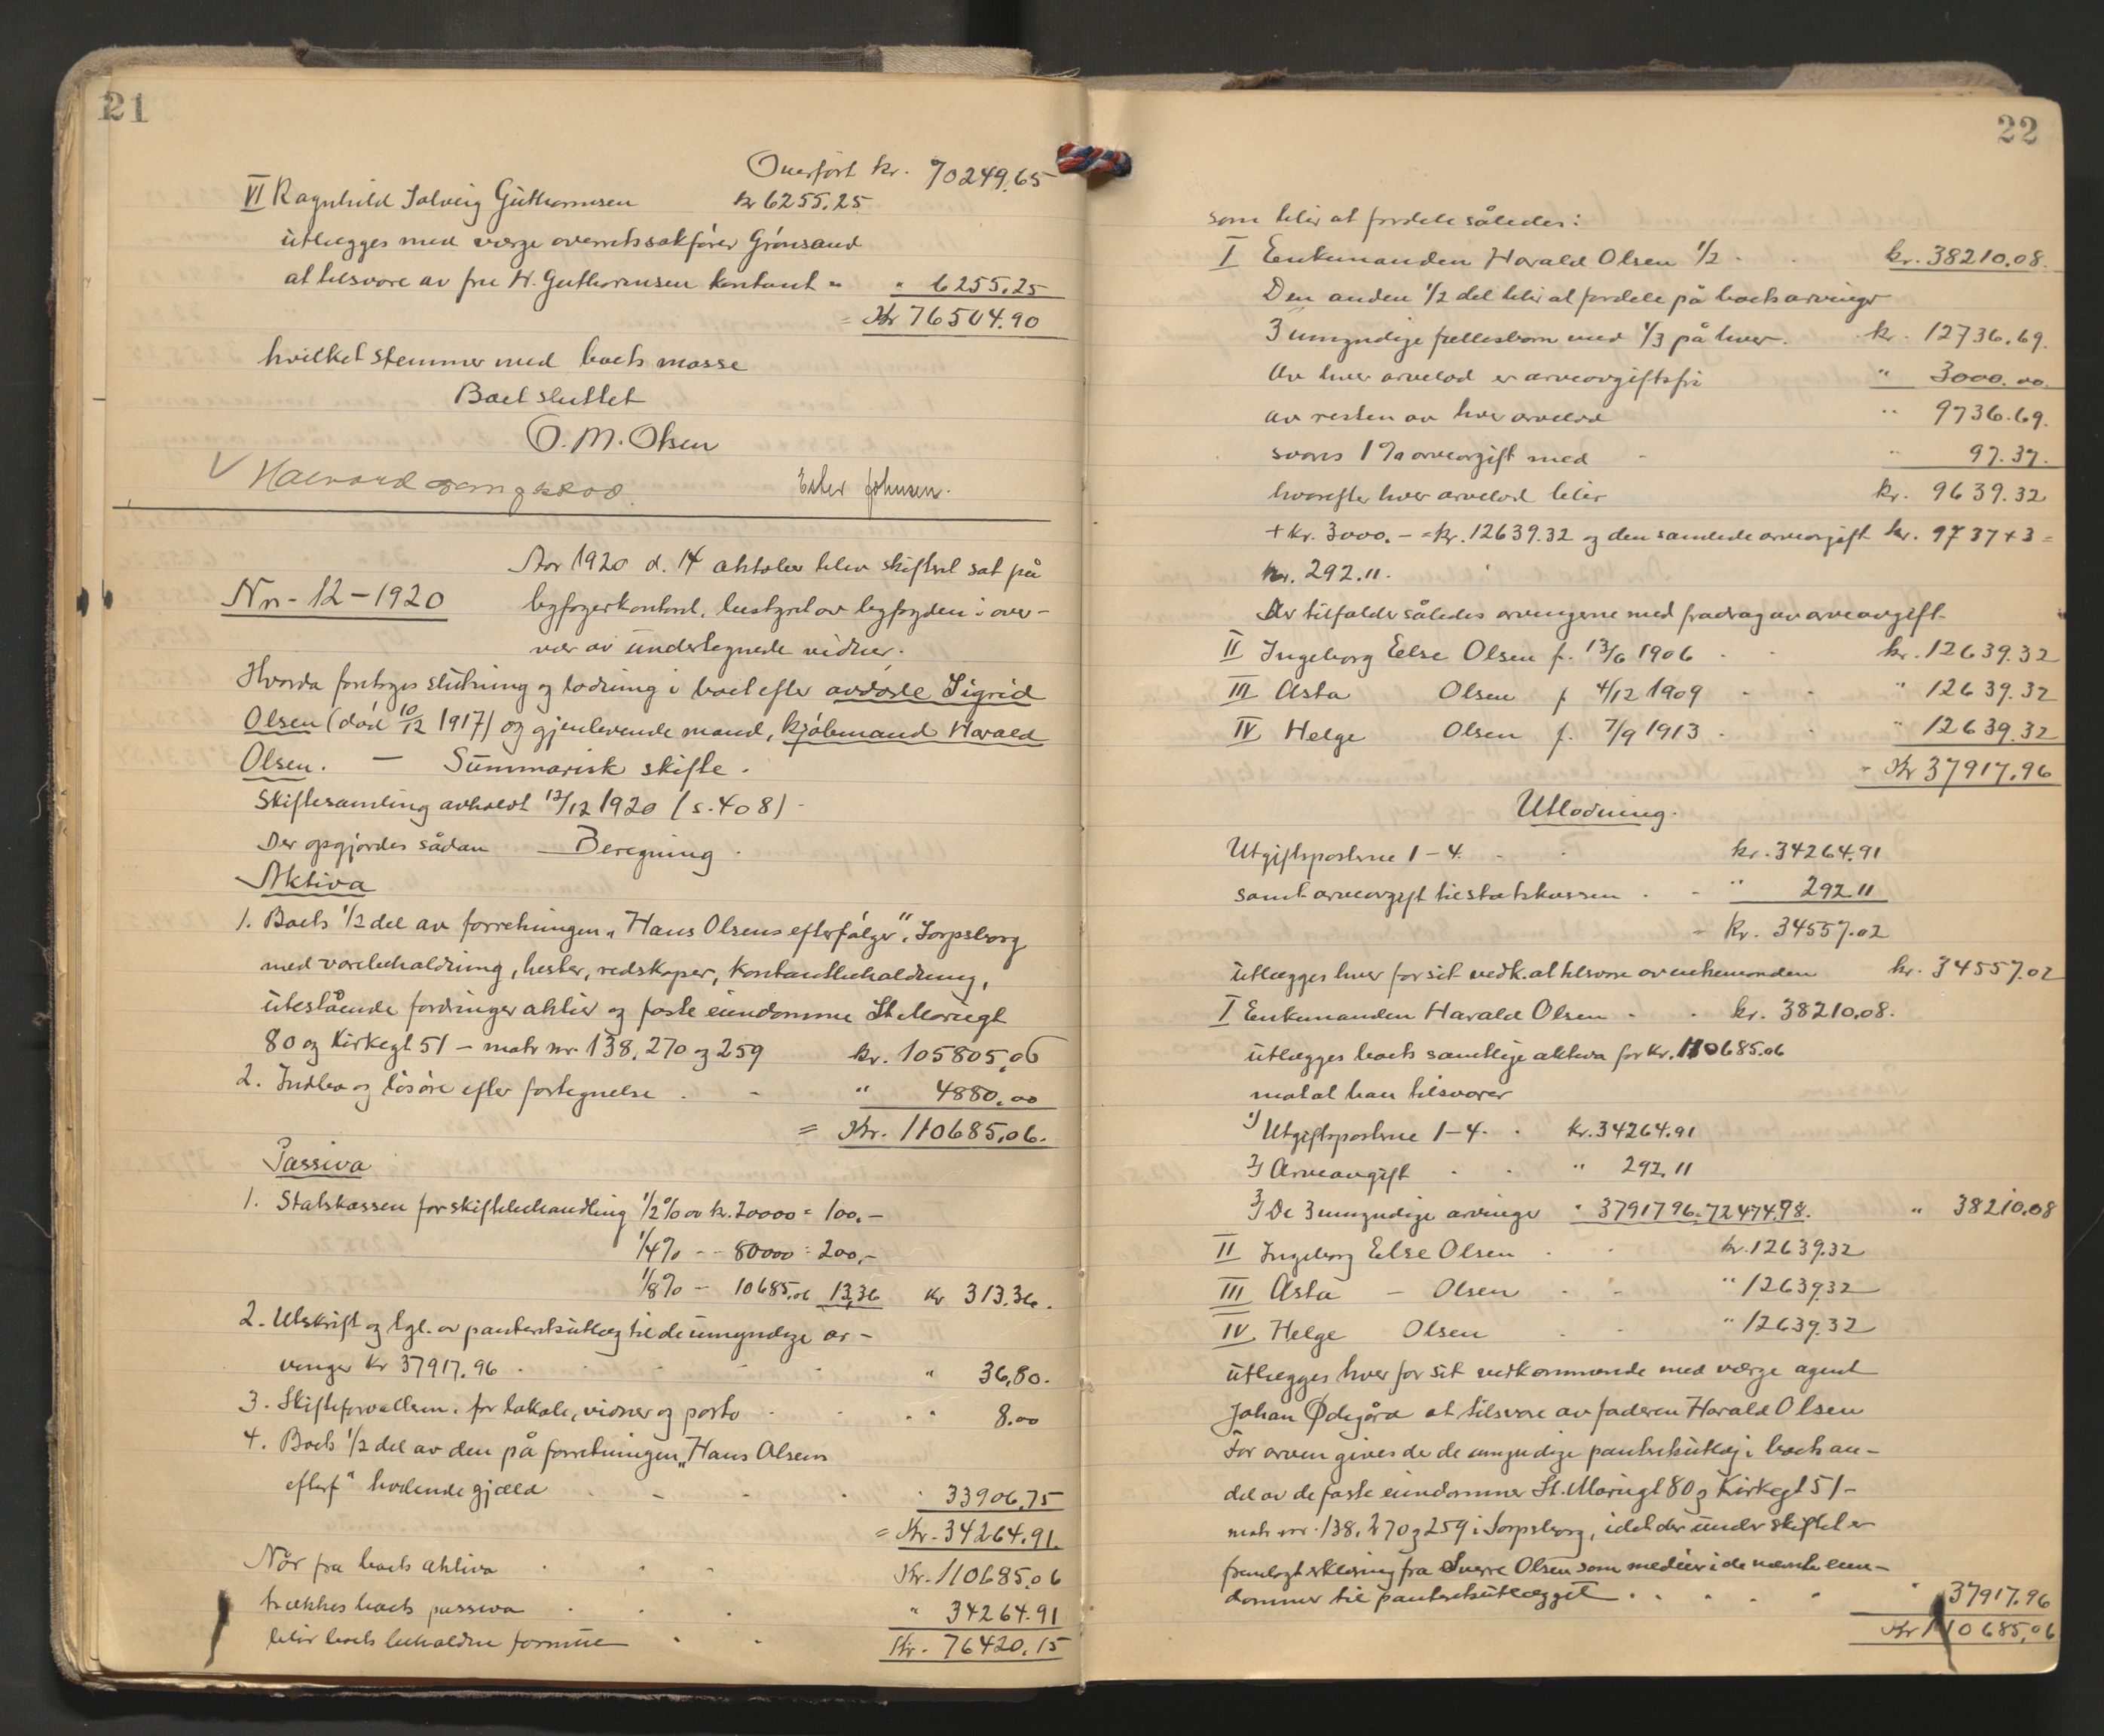 21
Overført kr. 70249.65
VI Ragnhild Solveig Guthormsen kr 6255.25
utlægges med værge overretssakfører Grönsand
at tilsvare av fru H. Guthormsen kontant " " 6255.25
= Kr 76504.90
hvilket stemmer med boets masse
Boet sluttet
O. M. Olsen
Ester Johnsen.
Nr - 12 - 1920
Aar 1920 d. 14 oktober blev skifteret sat på
byfogerkontoret, bestyret av byfogden i over-
vær av undertegnede vidner.
Hvorda foretoges slutning og lodning i boet efter avdøde Sigrid
Olsen (död 10/12 1917) og gjenlevende mand, kjöbmand Harald
Olsen. — Summarisk skifte.
Skiftesamling avholdt 12/12 1920 (s. 408)
Der opgjordes sådan Beregning.
Aktiva
1. Boets 1/2 del av forretningen „Hans Olsens efterfølger", Sarpsborg
med varebeholdning, hester, redskaper, kontantbeholdning,
utestående fordringer aktier og faste eiendomme St. Mariegt
80 og Kirkegt 51 - matr nr 138, 270 og 259 kr. 105805,06
2. Indbo og lösöre efter fortegnelse . - " 4880.00
= Kr. 110685,06.
Passiva
1. Statskassen for skiftebehandling 1/2% av kr. 20000 = 100.-
1/4% - - 80000 = 200,-
1/8% - 10685.06 13,36 Kr 313.36.
2. Utskrift og tgl. av panteretsutlæg til de umyndige ar-
vinger kr 37917.96 . . " 36,80.
3. Skifteforvalteren. for lokale, vidner og porto . . " 8.00
4. Boets 1/2 del av den på forretningen „Hans Olsens
efterf" hvilende gjæld . - - . " 33906,75
= Kr. 34264.91.
Når fra boets aktiva . . . Kr. 110685.06
trækkes boets passiva . . . " 34264.91
blir boets beholdne formue . . Kr. 76420.15
22
som blir at fordele således:
I Enkemanden Harald Olsen 1/2 . . kr. 38210.08.
Den anden 1/2 del blir at fordele på boets arvinger
3 umyndige fællesbarn med 1/3 på hver . kr. 12736.69.
Av hver arvelod er arveavgiftsfri " 3000.00.
av resten av hver arvelod " 9736.69.
svares 1% arveavgift med - " 97.37.
hvorefter hver arvelod blir kr. 9639.32
+ kr. 3000. - = kr. 12639.32 og den samlede arveavgift kr. 97 37 x 3 =
kr. 292.11.
Der tilfalder således arvingerne med fradrag av arveavgift.
II Ingeborg Else Olsen f. 13/6 1906 . . kr. 12639.32
III Asta Olsen f 4/12 1909 - - " 12639.32
IV Helge Olsen f. 7/9 1913 . . " 12639.32
= Kr 37917,96
Utlodning.
Utgiftsposterne 1 - 4. . . kr. 34264.91
samt arveavgift til statskassen . - " 292 11
= Kr. 34557.02
utlægges hver for sit vedk. at tilsvare av enkemanden kr. 34557.02
I Enkemanden Harald Olsen . . kr. 38210,08.
utlægges boets samtlige aktiva for kr. 110685.06
mot at han tilsvarer
1) Utgiftsposterne 1-4. . kr. 34264.91
2) Arveavgift . . " 292.11
3) De 3 umyndige arvinger " 37917 96. 72474.98. " 38210.08
II Ingeborg Else Olsen . . kr. 12639.32
III Asta - Olsen . . " 12639.32
IV Helge Olsen . . " 12639.32
utlægges hver for sit vedkommende med værge agent
Johan Ødegård at tilsvare av faderen Harald Olsen
For arven gives de de umyndige panteretsutlæg i boets an-
del av de faste eiendommer St. Mariegt 80 og Kirkegt 51 -
matr nr. 138, 270 og 259 i Sarpsborg, idet der under skiftet er
fremlagt erklæring fra Sverre Olsen som medeier i de nævnte eien-
dommer til panteretsutlægget . . . . . " 37917.96
Kr 110685,06